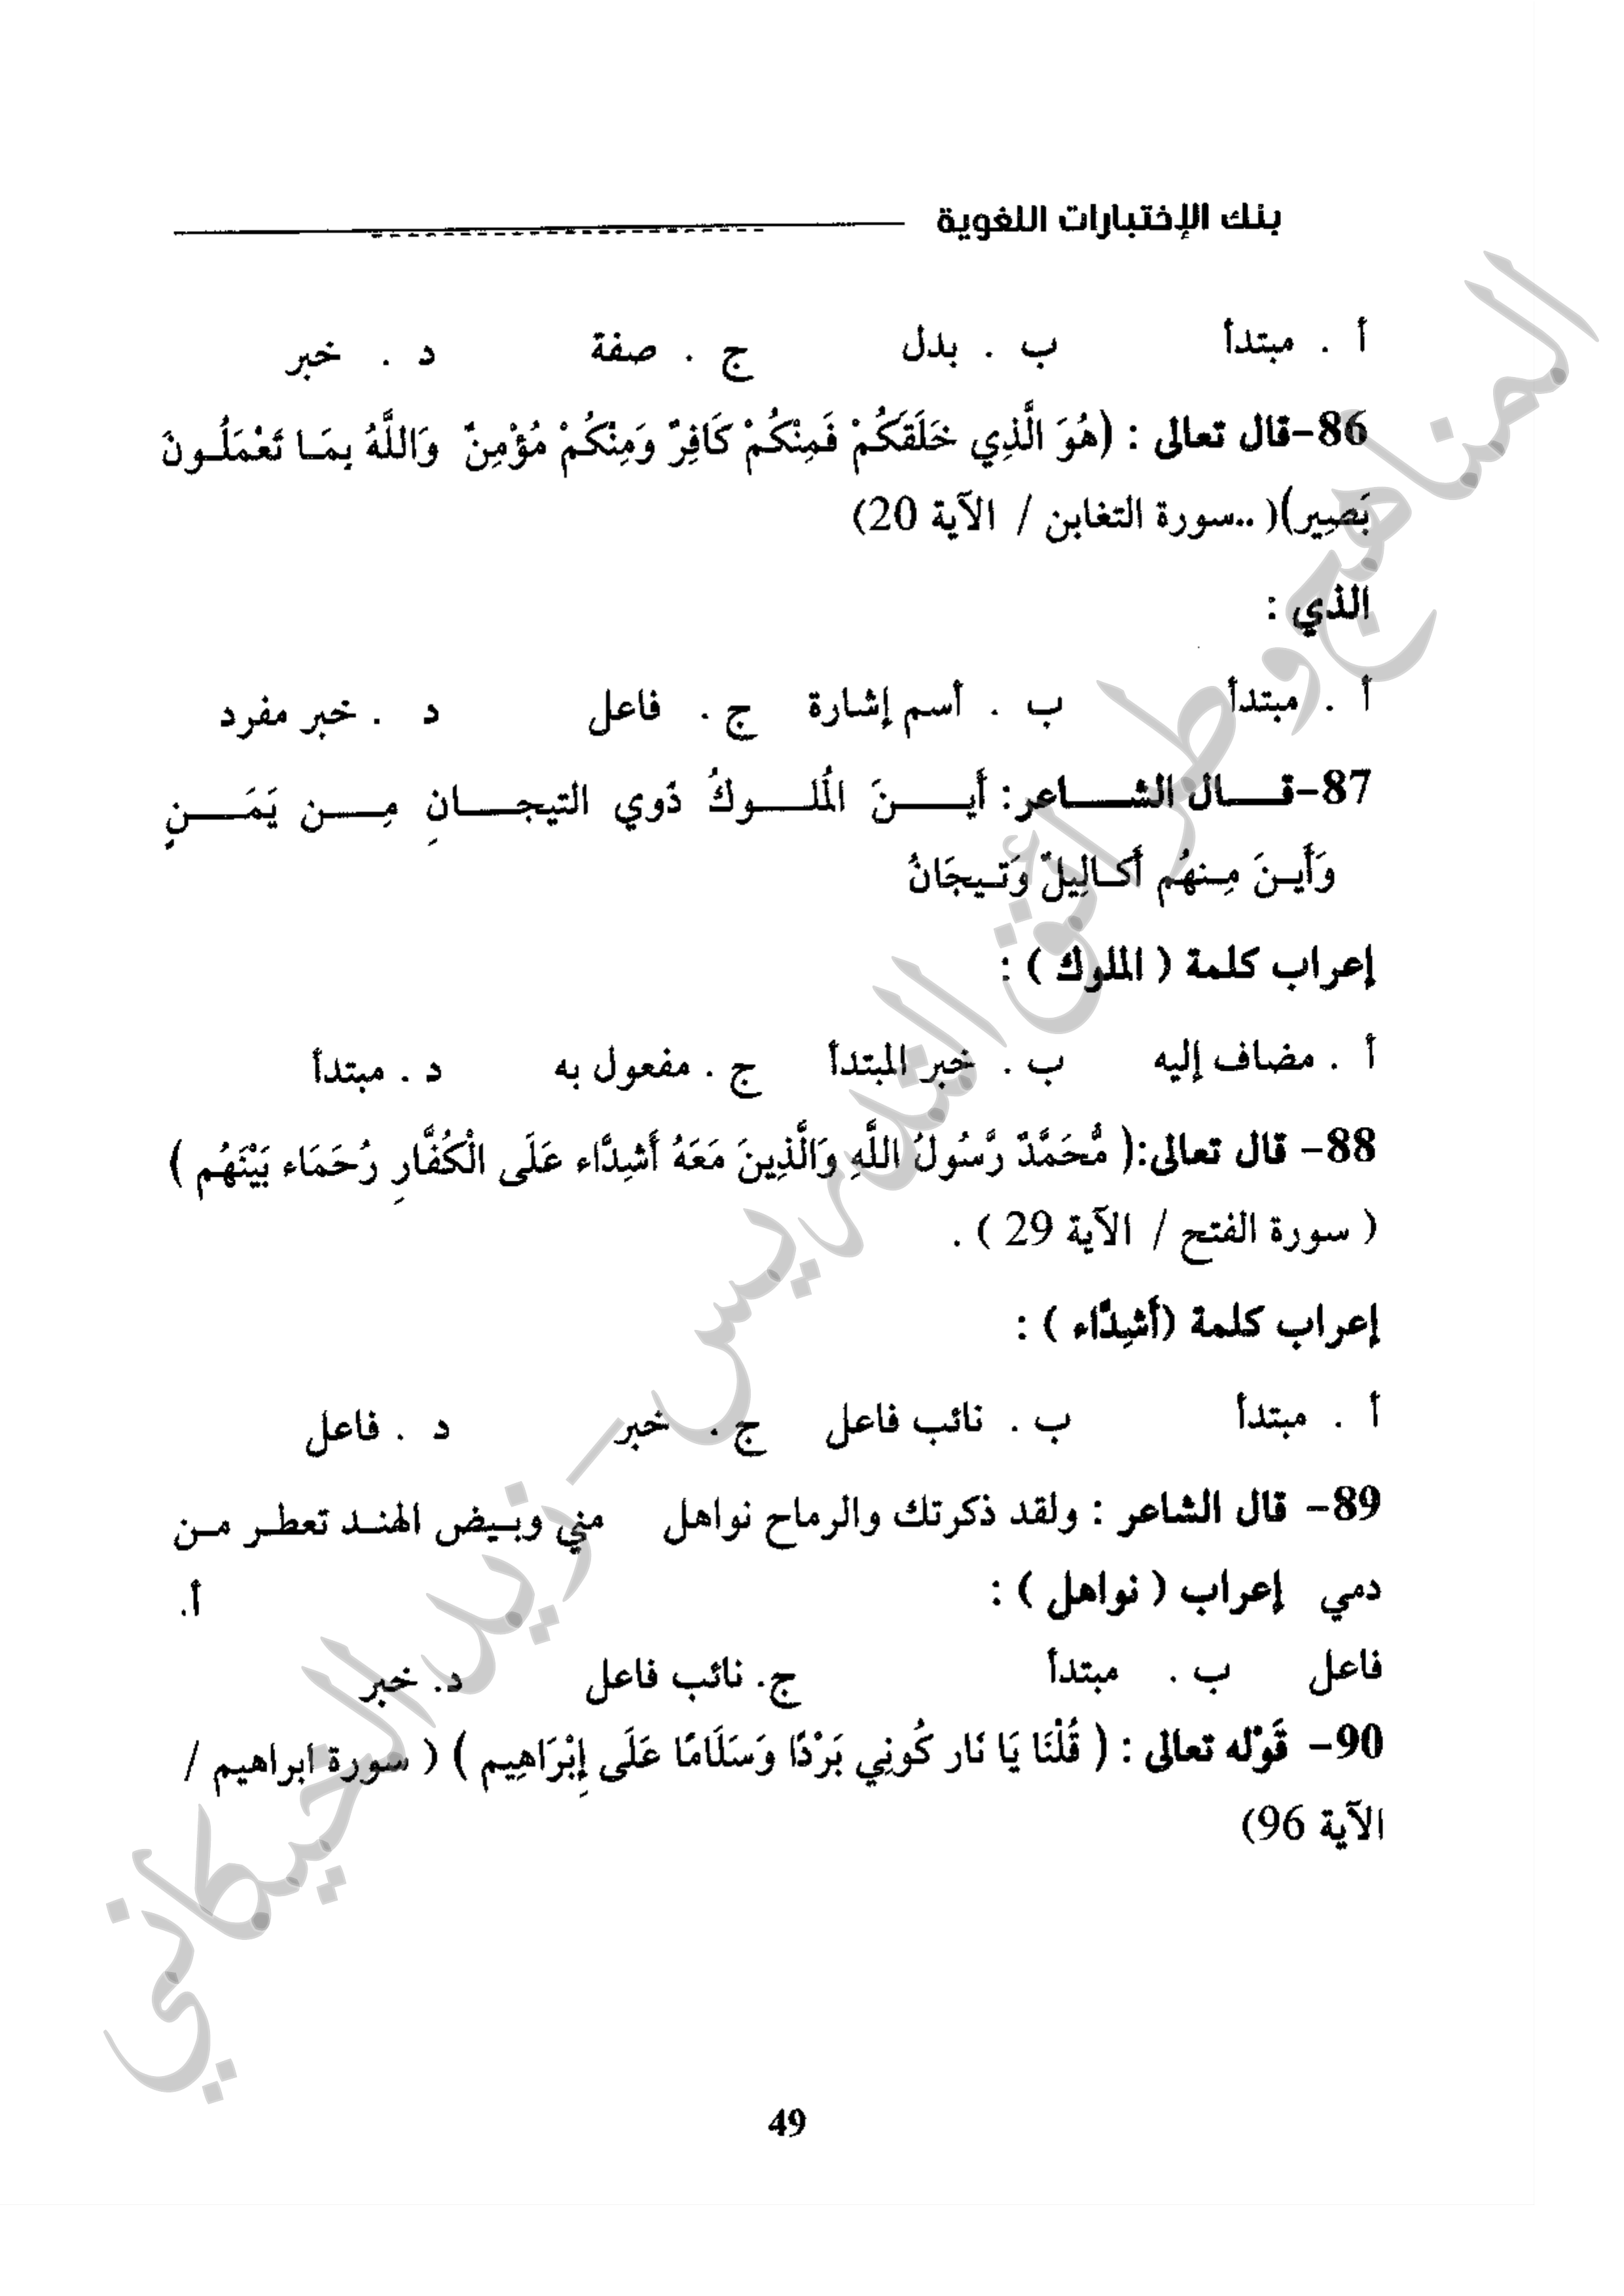 بنك الإختبارات اللغوية
أ . مبتدأ ب . بدل ج . صفة د . خبر
86-قال تعالى : (هُوَ الَّذِي خَلَقَكُمْ فَمِنْكُمْ كَافِرٌ وَمِنْكُمْ مُؤْمِنٌ وَاللَّهُ بِمَا تَعْمَلُونَ
بَصِير)( ..سورة التغابن / الآية 20)
الذي :
أ . مبتدأ ب . أسم إشارة ج . فاعل د . خبر مفرد
87-قال الشاعر: أَينَ المُلوكُ ذَوي التيجانِ مِن يَمَنٍ
وَأَينَ مِنهُم أَكالِيلٌ وَتيجَانُ
إعراب كلمة ( الملوك ) :
أ . مضاف إليه ب . خبر المبتدأ ج . مفعول به د . مبتدأ
88- قال تعالى:( مُّحَمَّدٌ رَّسُولُ اللَّهِ وَالَّذِينَ مَعَهُ أَشِدَّاء عَلَى الْكُفَّارِ رُحَمَاء بَيْنَهُم )
( سورة الفتح / الآية 29 ) .
إعراب كلمة (أَشِدَّاء ) :
أ . مبتدأ ب . نائب فاعل ج . خبر د . فاعل
89- قال الشاعر : ولقد ذكرتك والرماح نواهل مني وبيض الهند تعطر من
دمي إعراب ( نواهل ) : أ.
فاعل ب . مبتدأ ج. نائب فاعل د. خبر
90- قَوْله تعالى : ( قُلْنَا يَا نَار كُونِي بَرْدًا وَسَلَامًا عَلَى إِبْرَاهِيم ) ( سورة ابراهيم /
الآية 96)
49
المناهج وطرائق التدريس - زيد الخيكاني